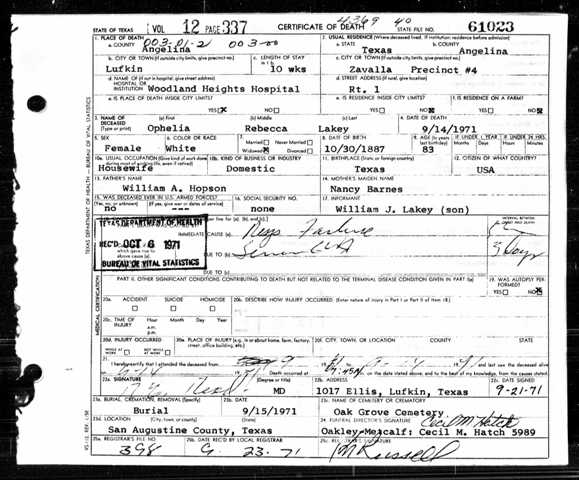 4369 40
STATE OF TEXAS VOL 12 PAGE 337 CERTIFICATE OF DEATH STATE FILE NO. 61023
1. PLACE OF DEATH 003-01-2 003-00 2. USUAL RESIDENCE (Where deceased lived, If institution: residence before admission)
a. COUNTY Angelina a. STATE Texas b. COUNTY Angelina
b. CITY OR TOWN (If outside city limits, give precinct no.) c. LENGTH OF STAY c. CITY OR TOWN (If outside city limits, give precinct no.)
Lufkin 10 wks Zavalla Precinct #4
d. NAME OF (If not in hospital, give street address) HOSPITAL OR INSTITUTION Woodland Heights Hospital d. STREET ADDRESS (If rural, give location) Rt. 1
e. IS PLACE OF DEATH INSIDE CITY LIMITS? YES NO e. IS RESIDENCE INSIDE CITY LIMITS? YES NO f. IS RESIDENCE ON A FARM? YES NO
3. NAME OF DECEASED (Type or print) (a) First (b) Middle (c) Last 4. DATE OF DEATH
Ophelia Rebecca Lakey 9/14/1971
5. SEX 6. COLOR OR RACE 7. Married Never Married Widowed Divorced 8. DATE OF BIRTH 9. AGE (In years last birthday) IF UNDER 1 YEAR IF UNDER 24 HRS.
Female White 10/30/1887 83 Months Days Hours Min.
10a. USUAL OCCUPATION (Give kind of work done during most of working life, even if retired) 10b. KIND OF BUSINESS OR INDUSTRY 11. BIRTHPLACE (State or foreign country) 12. CITIZEN OF WHAT COUNTRY?
Housewife Domestic Texas USA
13. FATHER'S NAME 14. MOTHER'S MAIDEN NAME
William A. Hopson Nancy Barnes
15. WAS DECEASED EVER IN U.S. ARMED FORCES? (Yes, no, or unknown) (If yes, give war or dates of service) 16. SOCIAL SECURITY NO. 17. INFORMANT
no --- none William J. Lakey (son)
TEXAS DEPARTMENT OF HEALTH
REC'D OCT 6 1971
BUREAU OF VITAL STATISTICS
IMMEDIATE CAUSE (a)
DUE TO (b)
DUE TO (c)
PART II. OTHER SIGNIFICANT CONDITIONS CONTRIBUTING TO DEATH BUT NOT RELATED TO THE TERMINAL DISEASE CONDITION GIVEN IN PART I(a) 19. WAS AUTOPSY PERFORMED? YES NO
20a. ACCIDENT SUICIDE HOMICIDE 20b. DESCRIBE HOW INJURY OCCURRED (Enter nature of injury in Part I or Part II of Item 18.)
20c. TIME OF INJURY Hour Month Day Year a.m. p.m.
20d. INJURY OCCURRED WHILE AT WORK NOT WHILE AT WORK 20e. PLACE OF INJURY (e.g., in or about home, farm, factory, street, office building, etc.) 20f. CITY, TOWN, OR LOCATION COUNTY STATE
21. I hereby certify that I attended the deceased from and last saw the deceased alive
on Death occurred at 7:45 m., on the date stated above, and to the best of my knowledge, from the causes stated.
22a. SIGNATURE (Degree or title) 22b. ADDRESS 22c. DATE SIGNED
MD 1017 Ellis, Lufkin, Texas 9-21-71
23a. BURIAL, CREMATION, REMOVAL (Specify) 23b. DATE 23c. NAME OF CEMETERY OR CREMATORY
Burial 9/15/1971 Oak Grove Cemetery
23d. LOCATION (City, town, or county) (State) 24. FUNERAL DIRECTOR'S SIGNATURE Cecil M Hatch
San Augustine County, Texas Oakley-Metcalf: Cecil M. Hatch 5989
25a. REGISTRAR'S FILE NO. 25b. DATE REC'D BY LOCAL REGISTRAR 25c. REGISTRAR'S SIGNATURE
398 9. 23. 71 Russell
TEXAS DEPARTMENT OF HEALTH - BUREAU OF VITAL STATISTICS
MEDICAL CERTIFICATION